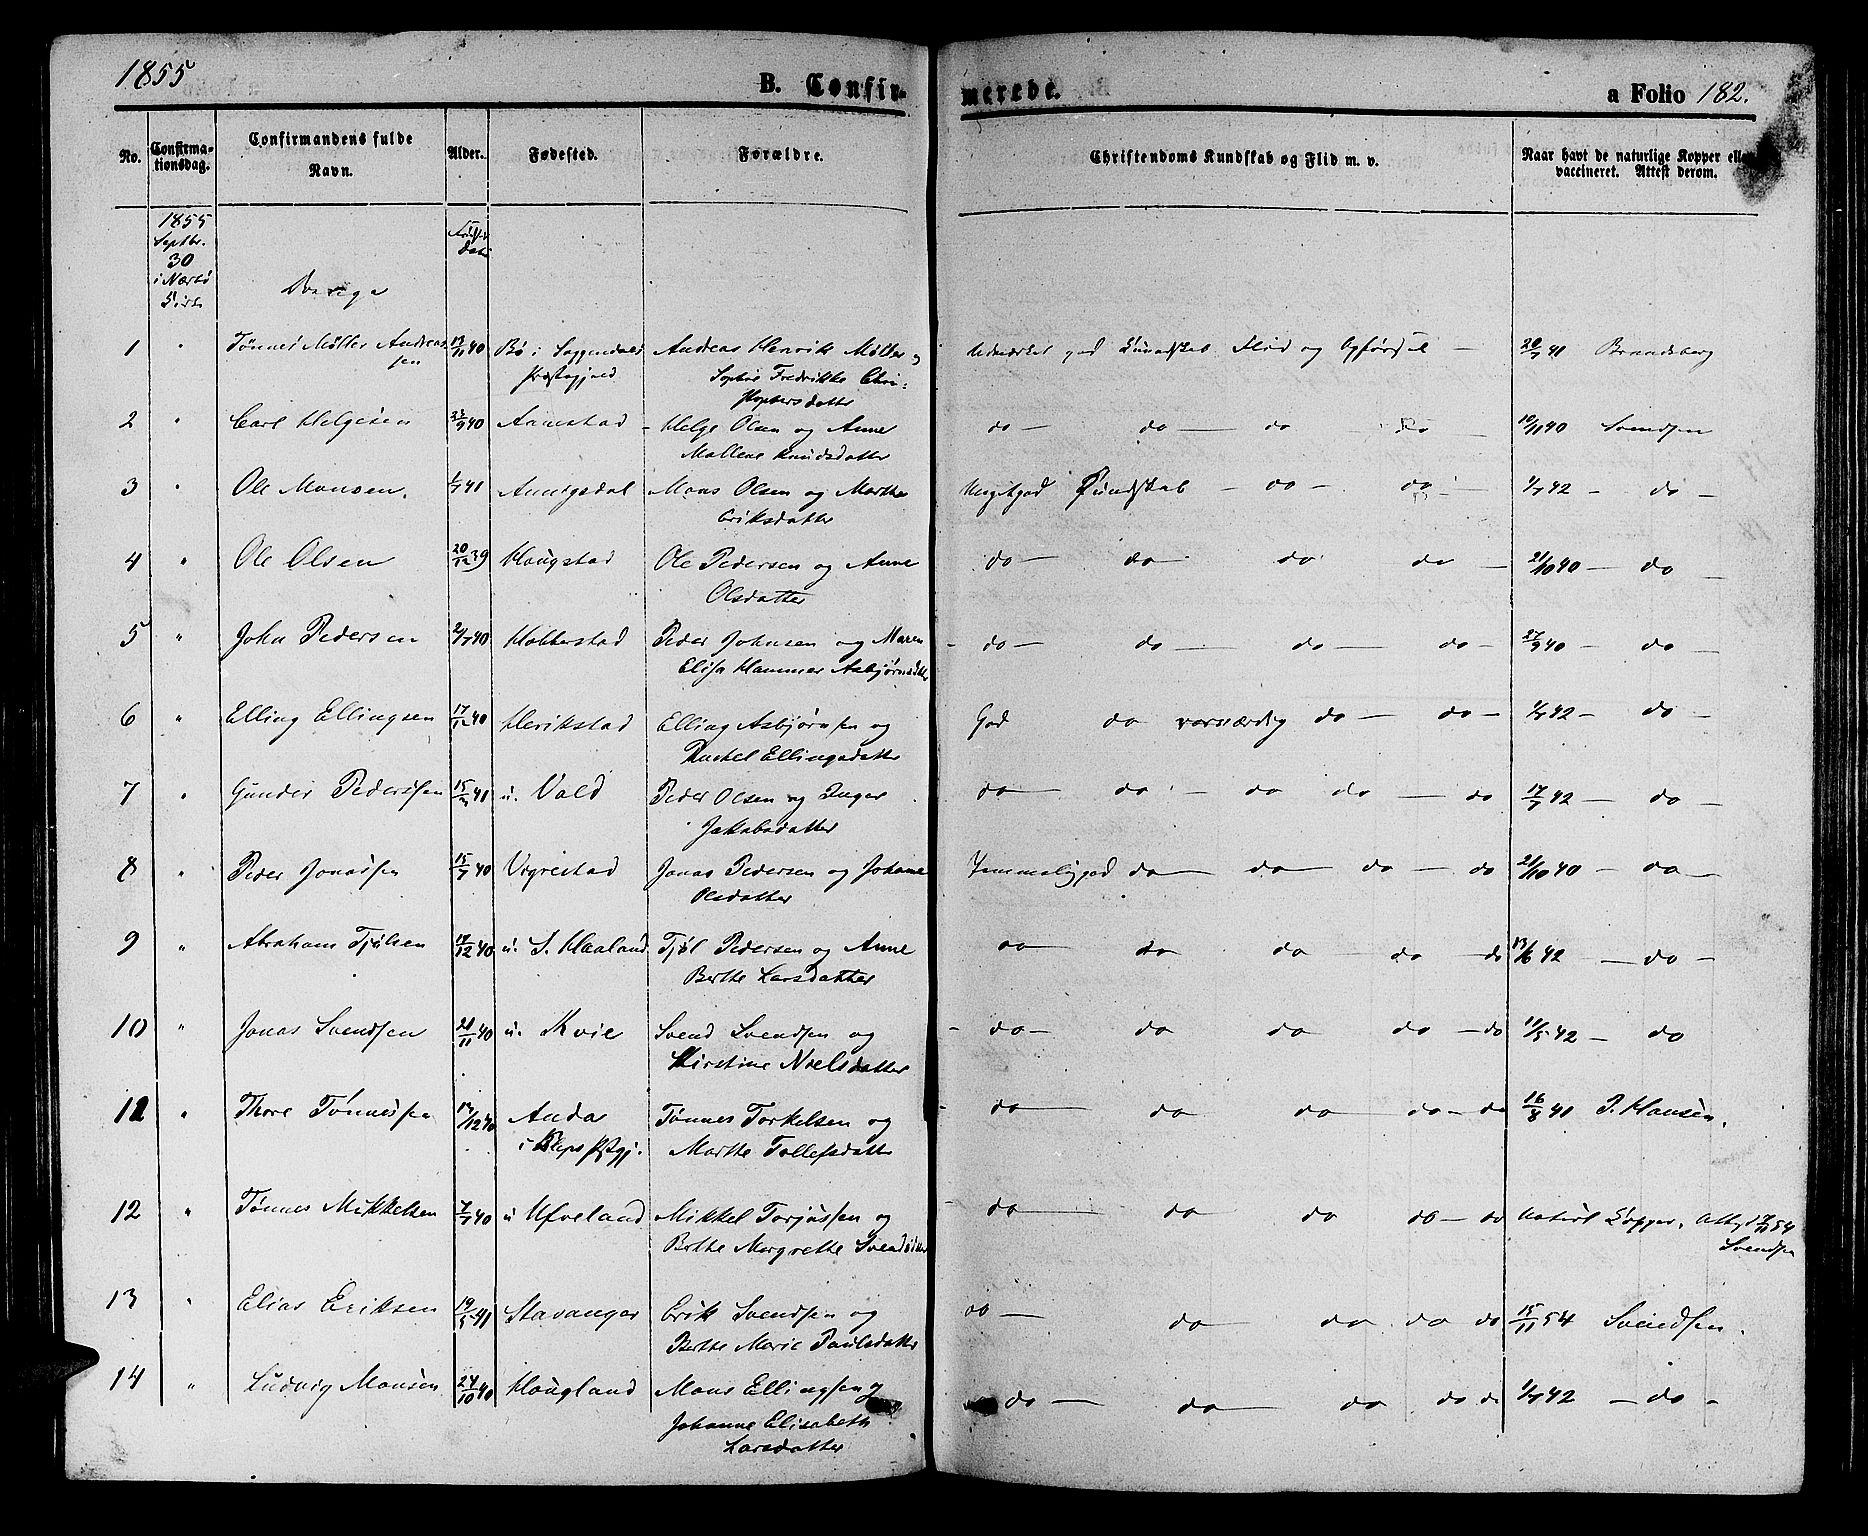 1855
B. Confir-
merede.
a Folio 182.
No.
Confirma-
tionsdag.
Confirmandens fulde
Navn.
Alder.
Fødested.
Forældre.
Christendoms Kundskab og Flid m. v.
Naar havt de naturlige Kopper eller
vaccineret. Attest derom.
1855
Septbr.
30
i Nærbø
Kirke
Drenge
1 " Tønnes Møller Andreas- 13/11 40 Bø i Andreas Henrik Møller og Kundskab Flid og Opførsel — 20/7 41 Brandsberg
sen Præstegjeld Sophie Fredrikke Chri-
stophersdatter
2 " Carl Helgesen 23/9 40 Helge Olsen og Anne do — do — do — do — 10/11 40 Svendsen
Mallene Knudsdatter
3 " Ole Monsen. 1/1 41 Mons Olsen og Marthe Megetgod Kundskab — do — do — 1/7 42 — do —
Eriksdatter
4 " Ole Olsen 20/12 39 Haugstad Ole Pedersen og Anne do — do — do do — 21/10 40 — do —
Olsdatter
5 " John Pedersen 2/7 40 Hobberstad Peder Johnsen og Maren do — do — do — do — 27/9 40 — do —
Elisa Hammer Asbjørnsdtter
6 " Elling Ellingsen 17/12 40 Herikstad Elling Asbjørnsen og God do do — do — 1/7 42 — do —
Rachel Ellingsdatter
7 " Gunder Pedersen 15/2 41 u. Vold Peder Olsen og Inger do — do — do do — do 17/7 42 — do —
Jakobsdatter
8 " Peder Jonassen 15/7 40 Vigrestad Jonas Pedersen og Johanne Temmeliggod do — do — do — do 21/10 40 — do —
Olsdatter
9 " Abraham Tjølsen 18/12 40 u. S. Haaland Tjøl Pedersen og Anne do — do do do — do 13/6 42 — do —
Berthe Larsdatter
10 " Jonas Svendsen 21/11 40 u. Kvie Svend Svendsen og do — do do do — do 11/5 42 — do
Kirstine Nielsdatter
11 " Thore Tønnessen 14/12 40 Anda Tønnes Torkelsen og do — do do do — do 16/8 41 P. Hansen.
i Kleps Pstgj. Marthe Tollefsdatter
12 " Tønnes Mikkelsen 7/7 40 u Ueland Mikkel Torjussen og do — do do do — do naturl Kopper.
Berthe Margrethe Svendsdtter Svendsen
13 " Elias Eriksen 19/5 41 Stavanger Erik Svendsen og do — do do do do 15/11 54 Svendsen.
Berthe Marie Paulsdatter
14 " Ludvig Monsen 24/10 40 Haugland Mons Ellingsen og do — do — do do do 1/7 42 — do —
Johanne Elisabeth
Larsdatter